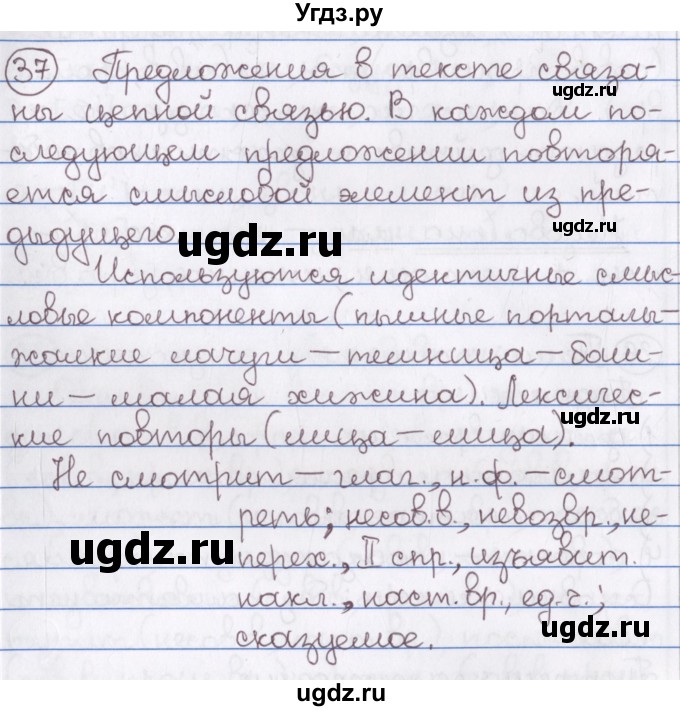 Угдз.ру
37 Предложения в тексте связа-
ны цепной связью. В каждом по-
следующем предложении повторя-
ется смысловой элемент из пре-
дыдущего.
Используются идентичные смыс-
ловые компоненты (пышные порталы-
жалкие лачуги – темница – баш-
ни – малая хижина). Лексичес-
кие повторы (лица – лица).
Не смотрит – глаг., н. ф. – смот-
реть; несов.в., невозвр., не-
перех., II спр., изъявит.
накл., наст. вр., ед.ч.;
сказуемое.
ugdz.ru
ugdz.ru
ugdz.ru
ugdz.ru
ugdz.ru
ugdz.ru
ugdz.ru
ugdz.ru